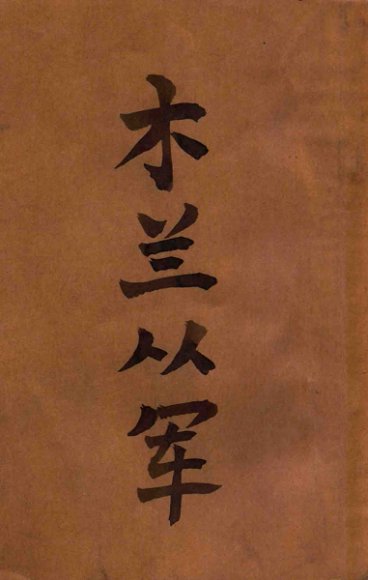 木兰从军